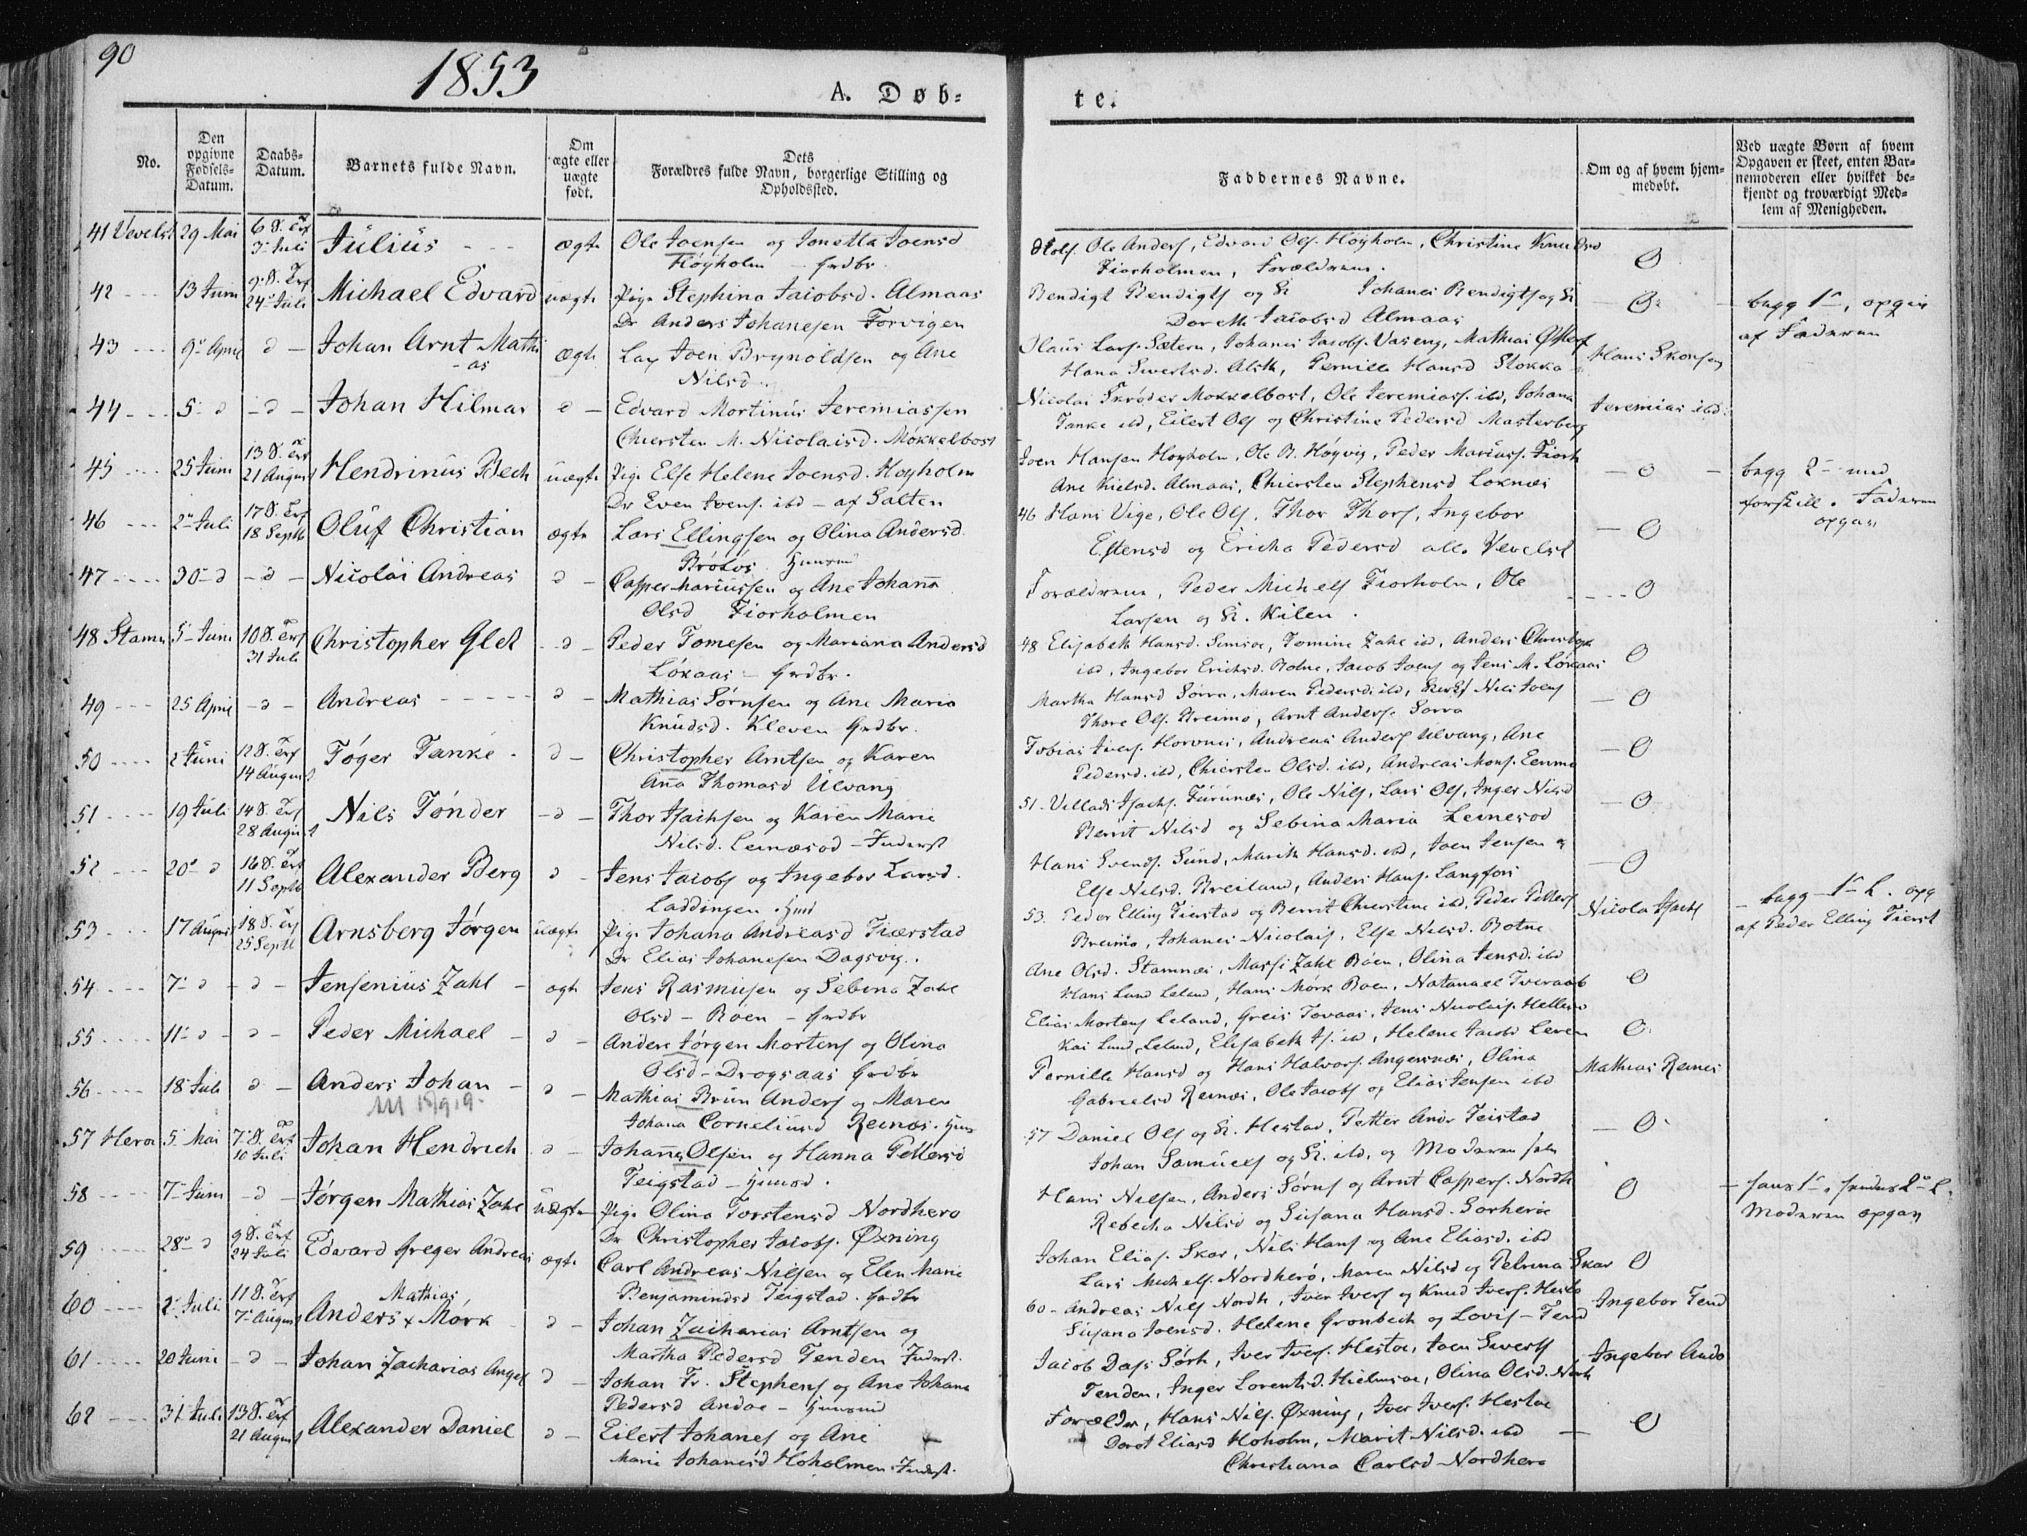 90
1853
A. Døb-
te.
No.
Den opgivne Fødsels-Datum.
Daabs-Datum.
Barnets fulde Navn.
Om ægte eller uægte født.
Dets Forældres fulde Navn, borgerlige Stilling og Opholdssted.
Faddernes Navne.
Om og af hvem hjemmedøbt.
Ved uægte Børn af hvem Opgaven er skeet, enten Barnemoderen eller hvilket bekjendt og troværdigt Medlem af Menigheden.
41 Vevelst 29 Mai 6 S. Trf 3 Juli Julius ægte Ole Joensen og Jonetta Joensd
Høyholm
Ole Anders, Edvard Ols. Høyholm, Christine Knudsd
Fiorholmen, Forældrene.
42 13 Juni 9 S. Trf 24 Juli Michael Edvard uægte Pige Stephina Jacobsd. Almaas
Dr Anders Johanesen Forvigen
Bendigt Bendigts og Johanes Bendigts og
Doreth Jacobsd Almaas
af Faderen
43 9 April d Johan Arnt Mathias ægte Joen Brynoldsen og Ane
Nilsd.
Olaus Lars. Sætern, Johanes Jacobs. Vaseng, Mathias
Hana Sivertsd. Alsth, Pernille Hansd Stokka
Hans
44 5 d d Johan Hilmar d Edvard Mortinus Jeremiassen
Chiersten M. Nicolaisd. Møkkelbost
Nicolai Schrøder Mokkelbost, Ole Jeremiass. ibd, Johana
Tanke ibd, Eilert Ols og Christine Pedersd Masterberg
Jeremias ibd.
45 25 Juni 13 S. Trf 21 August Hendrinus Bech uægte Pige Else Helene Joensd. Høyholm
Dr Even Ivers. ibd - af Salten
Joen Hansen Høyholm, Ole B. Høyvig, Peder Mariuss.
Ane Nielsd. Almaas, Chiersten Stephensd Loknæs
46 2 Juli 17 S. Trf 18 Septb Oluf Christian ægte Lars Ellingsen og Olina Andersd.
46 Hans Vige, Ole Ols, Thor Thors, Ingebor
Estensd og Ericha Pedersd alle Vevelst
47 30 d d Nicolai Andreas d Casper Mariussen og Ane Johana
Olsd Fiorholmen
Forældrene, Peder Michels Fiorholm, Ole
Larsen og Kilen.
48 Stamn 5 Juni 10 S. Trf 31 Juli Christopher Glet d Peder Tomesen og Mariana Andersd
Løkaas - Grdbr.
48 Elisabeth Hansd. Simsoe, Tomine Zahl ibd, Anders
ibd, Ingebor Erichsd. Botne, Jacob Joens og Jens M. Løkaas
49 25 April d Andreas d Mathias Sørnsen og Ane Maria
Knudsd. Kleven Grdbr.
Martha Hansd Sørra, Maren Pedersd. ibd, Nils Joens
Thore Ols. Breimo, Arnt Anders. Sørra
50 2 Juni 12 S. Trf 14 August Tøger Tanke d Christopher Arntsen og Karen
Ana Thomasd Ulvang
Tobias Ivers. Hovnes, Andreas Anders Ulvang, Ane
Pedersd. ibd, Chiersten Olsd. ibd, Andreas Mons.
51 19 Juli 14 S. Trf 28 August Nils Tønder d Thor Isachsen og Karen Marie
Nilsd. Leinesod - Inderst
51 Villads Isachs. Furunæs, Ole Nils, Lars Ols, Inger Nilsd
Berrit Nilsd og Sebina Maria Leinesod
52 20 d 16 S. Trf 11 Septb Alexander Berg d Jens Jacobs og Ingebor Larsd.
Laddingen
Hans Svends. Sund, Marith Hansd. ibd, Joen Jensen
Else Nilsd. Breiland, Anders Hans. Langfors
53 17 August 18 S. Trf 25 Septb Arnsberg Jørgen uægte Pige Johana Andreasd Tiærstad
Dr Elias Johanesen Dagsvig.
53 Peder Elling Tierstad og Berrit Chierstine ibd, Peder Petters
Breimo, Johanes Nicolais, Else Nilsd. Botne
Nicola Isachs
af Peder Elling Tierst
54 7 d d Jensenius Zahl ægte Jens Rasmusen og Sebina Zahl
Olsd - Boen - Grdbr
Ane Olsd. Stamnæs, Massi Zahl Boen, Olina Jensd. ibd
Hans Lund Leland, Hans Mørk Boen, Natanael Tveraab
55 11 d d Peder Michael d Anders Jørgen Mortens og Olina
Olsd - Drogsaas Grdbr
Elias Mortens Leland, Greis Tovaas, Jens Nicolais.
Kai Lund, Leland, Elisabeth ibd, Helene Jacobsd
56 18 Juli d Anders Johan d Mathias Brun Anders og Maren
Johana Corneliusd Reinæs.
Pernille Hansd og Hans Halvors. Angersnæs, Olina
Gabrielsd Reinæs, Ole Jacobs og Elias Jensen ibd
Mathias Reines
57 Herø 5 Mai 7 S. Trf 10 Juli Johan Hendrich d Johan Olsen og Hanna Pettersd
Teigstad
57 Daniel Ols og Hestad, Petter Andr Teistad
Johan Samuels og ibd, og Moderen selv
58 7 Juni d Jørgen Mathias Zahl uægte Pige Olina Torstensd Nordherø
Dr Christopher Jacobs. Øxning
Hans Nilsen, Anders Sørns og Arnt Caspers. Nordh
Rebecka Nilsd og Susana Hansd. Sørherø
Moderen opgav
59 28 d 9 S. Trf 24 Juli Edvard Greger Andreas ægte Carl Andreas Nilsen og Elen Marie
Benjaminsd Teigstad. Grdbr
Johan Elias. Skar, Nils Hans og Ane Eliasd. ibd
Lars Michels. Nordherø, Maren Nilsd og Petrina Skar
60 2 Juli 11 S. Trf 7 August Anders Mathias Mørk d Johan Zacharias Arntsen og
Martha Pedersd Tenden Inderst.
60 Andreas Nils Nordh, Iver Ivers og Knud Ivers. Hestø
Susana Joensd. Helene Grønbech og Lovis - Tend
Ingebor Tend
61 20 Juni d Johan Zacharias Angel d Johan Fr. Stephens og Ane Johana
Pedersd Andøe
Jacob Dass Sørh, Iver Ivers. Hestøe, Joen Siverts
Tenden, Inger Lorentsd. Hielmsøe, Olina Olsd. Nordh
Ingebor Andø
62 31 Juli 13 S. Trf 21 August Alexander Daniel d Eilert Johanes og Ane
Marie Johanesd Hoholmen. Inderst.
Forælder, Hans Nils. Øxning, Iver Ivers. Hestøe
Dorot Eliasd Hoholm, Marit Nilsd. ibd
Christiana Carlsd Nordherø